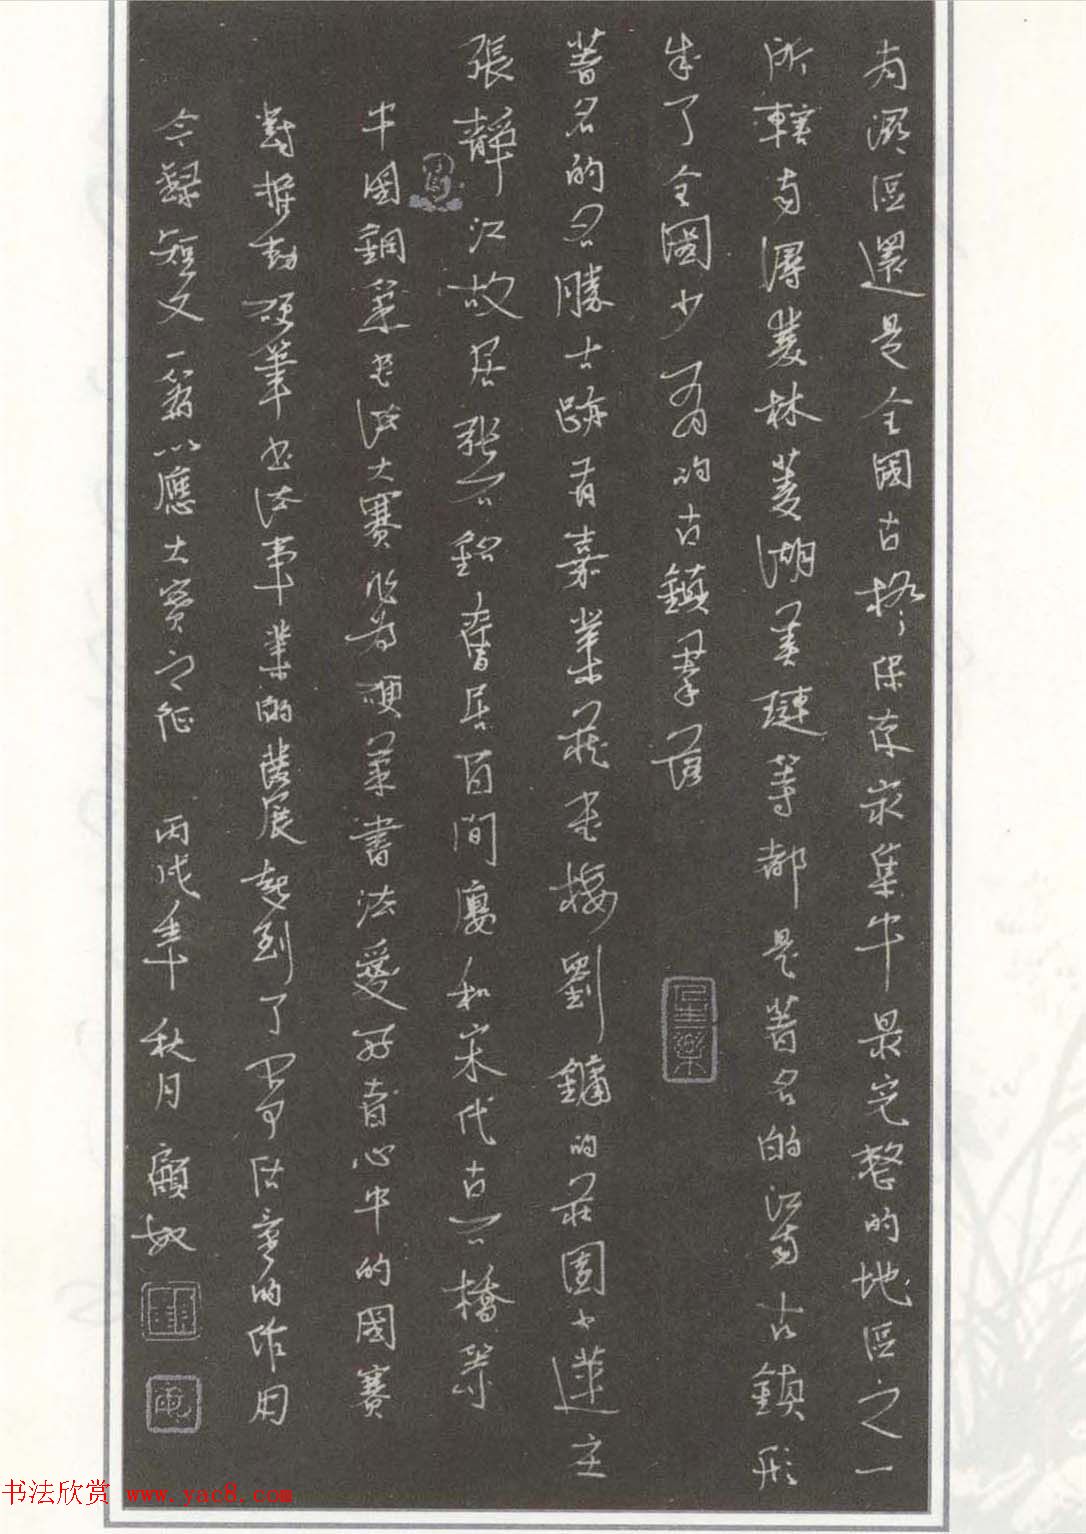 南潯區還是全國古橋保存最集中最完整的地區之一
所轄南潯雙林菱湖善璉等都是著名的江南古鎮形
成了全國少有的古鎮羣落
著名的名勝古跡有嘉業藏書樓劉鏞的莊園小蓮莊
張靜江故居張石銘舊居百間樓和宋代古石橋等
中國鋼筆書法大賽作爲硬筆書法愛好者心中的國賽
對推動硬筆書法事業的蓬展起到了至關重要的作用
今錄短文一篇以應大賽之征 丙戌年秋月 顧敏
書法欣賞 www.yac8.com